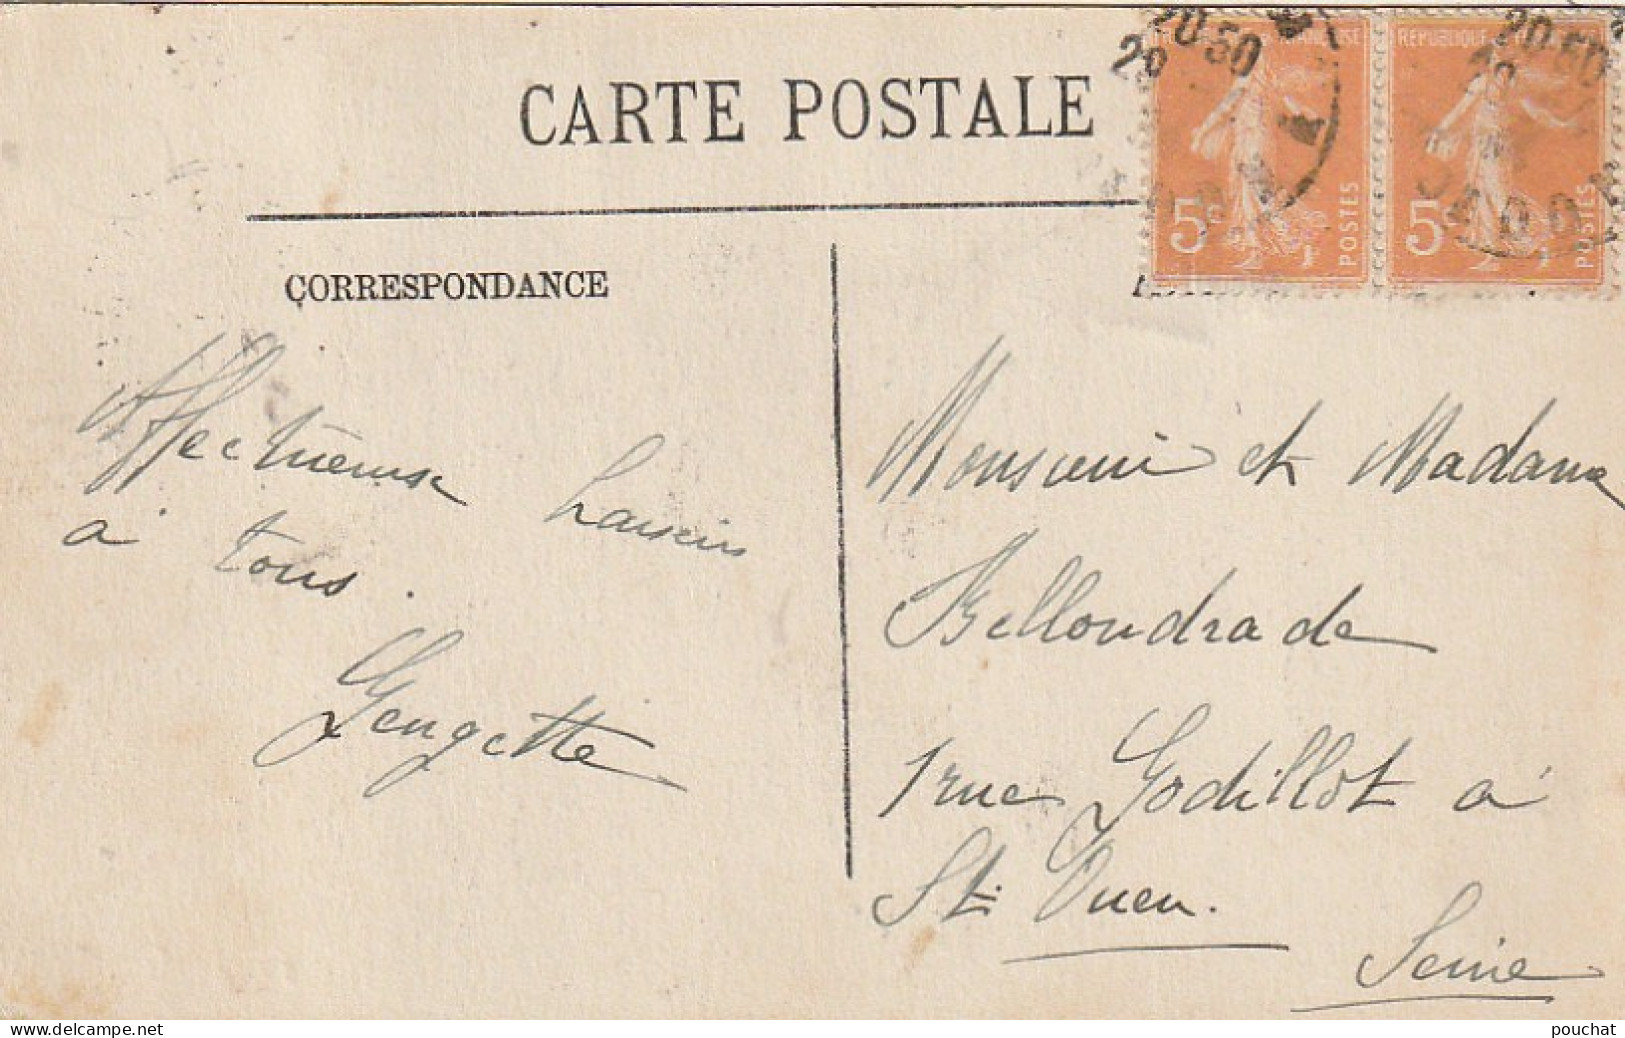 CARTE POSTALE
20·50
20·50
RÉPUBLIQUE
5c
POSTES
5c
POSTES
CORRESPONDANCE
Affectueuse baisers
à tous.
Georgette
Monsieur et Madame
Bellondrade
1 rue Godillot à
St. Ouen.
Seine
delcampe.net
pouchat